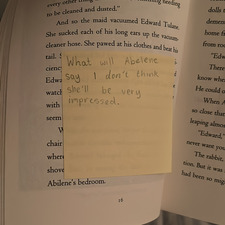 to be cleaned and dusted."
And so the maid vacuumed Edward Tulane.
She sucked each of his long ears up the vacuum-
cleaner hose. She pawed at his clothes and beat his
tail. S
What will Abelene
say I don't think
she'll be very
impressed.
clean
Edw
watch
with
seem
W
chair
where
shove
Abilene's bedroom.
16
dolls
de
in her
from
"Edw
There
know whe
He could o
When A
so close that
leaping almos
"Edward,"
never want you
The rabbit,
tion. But it was
had been so mig